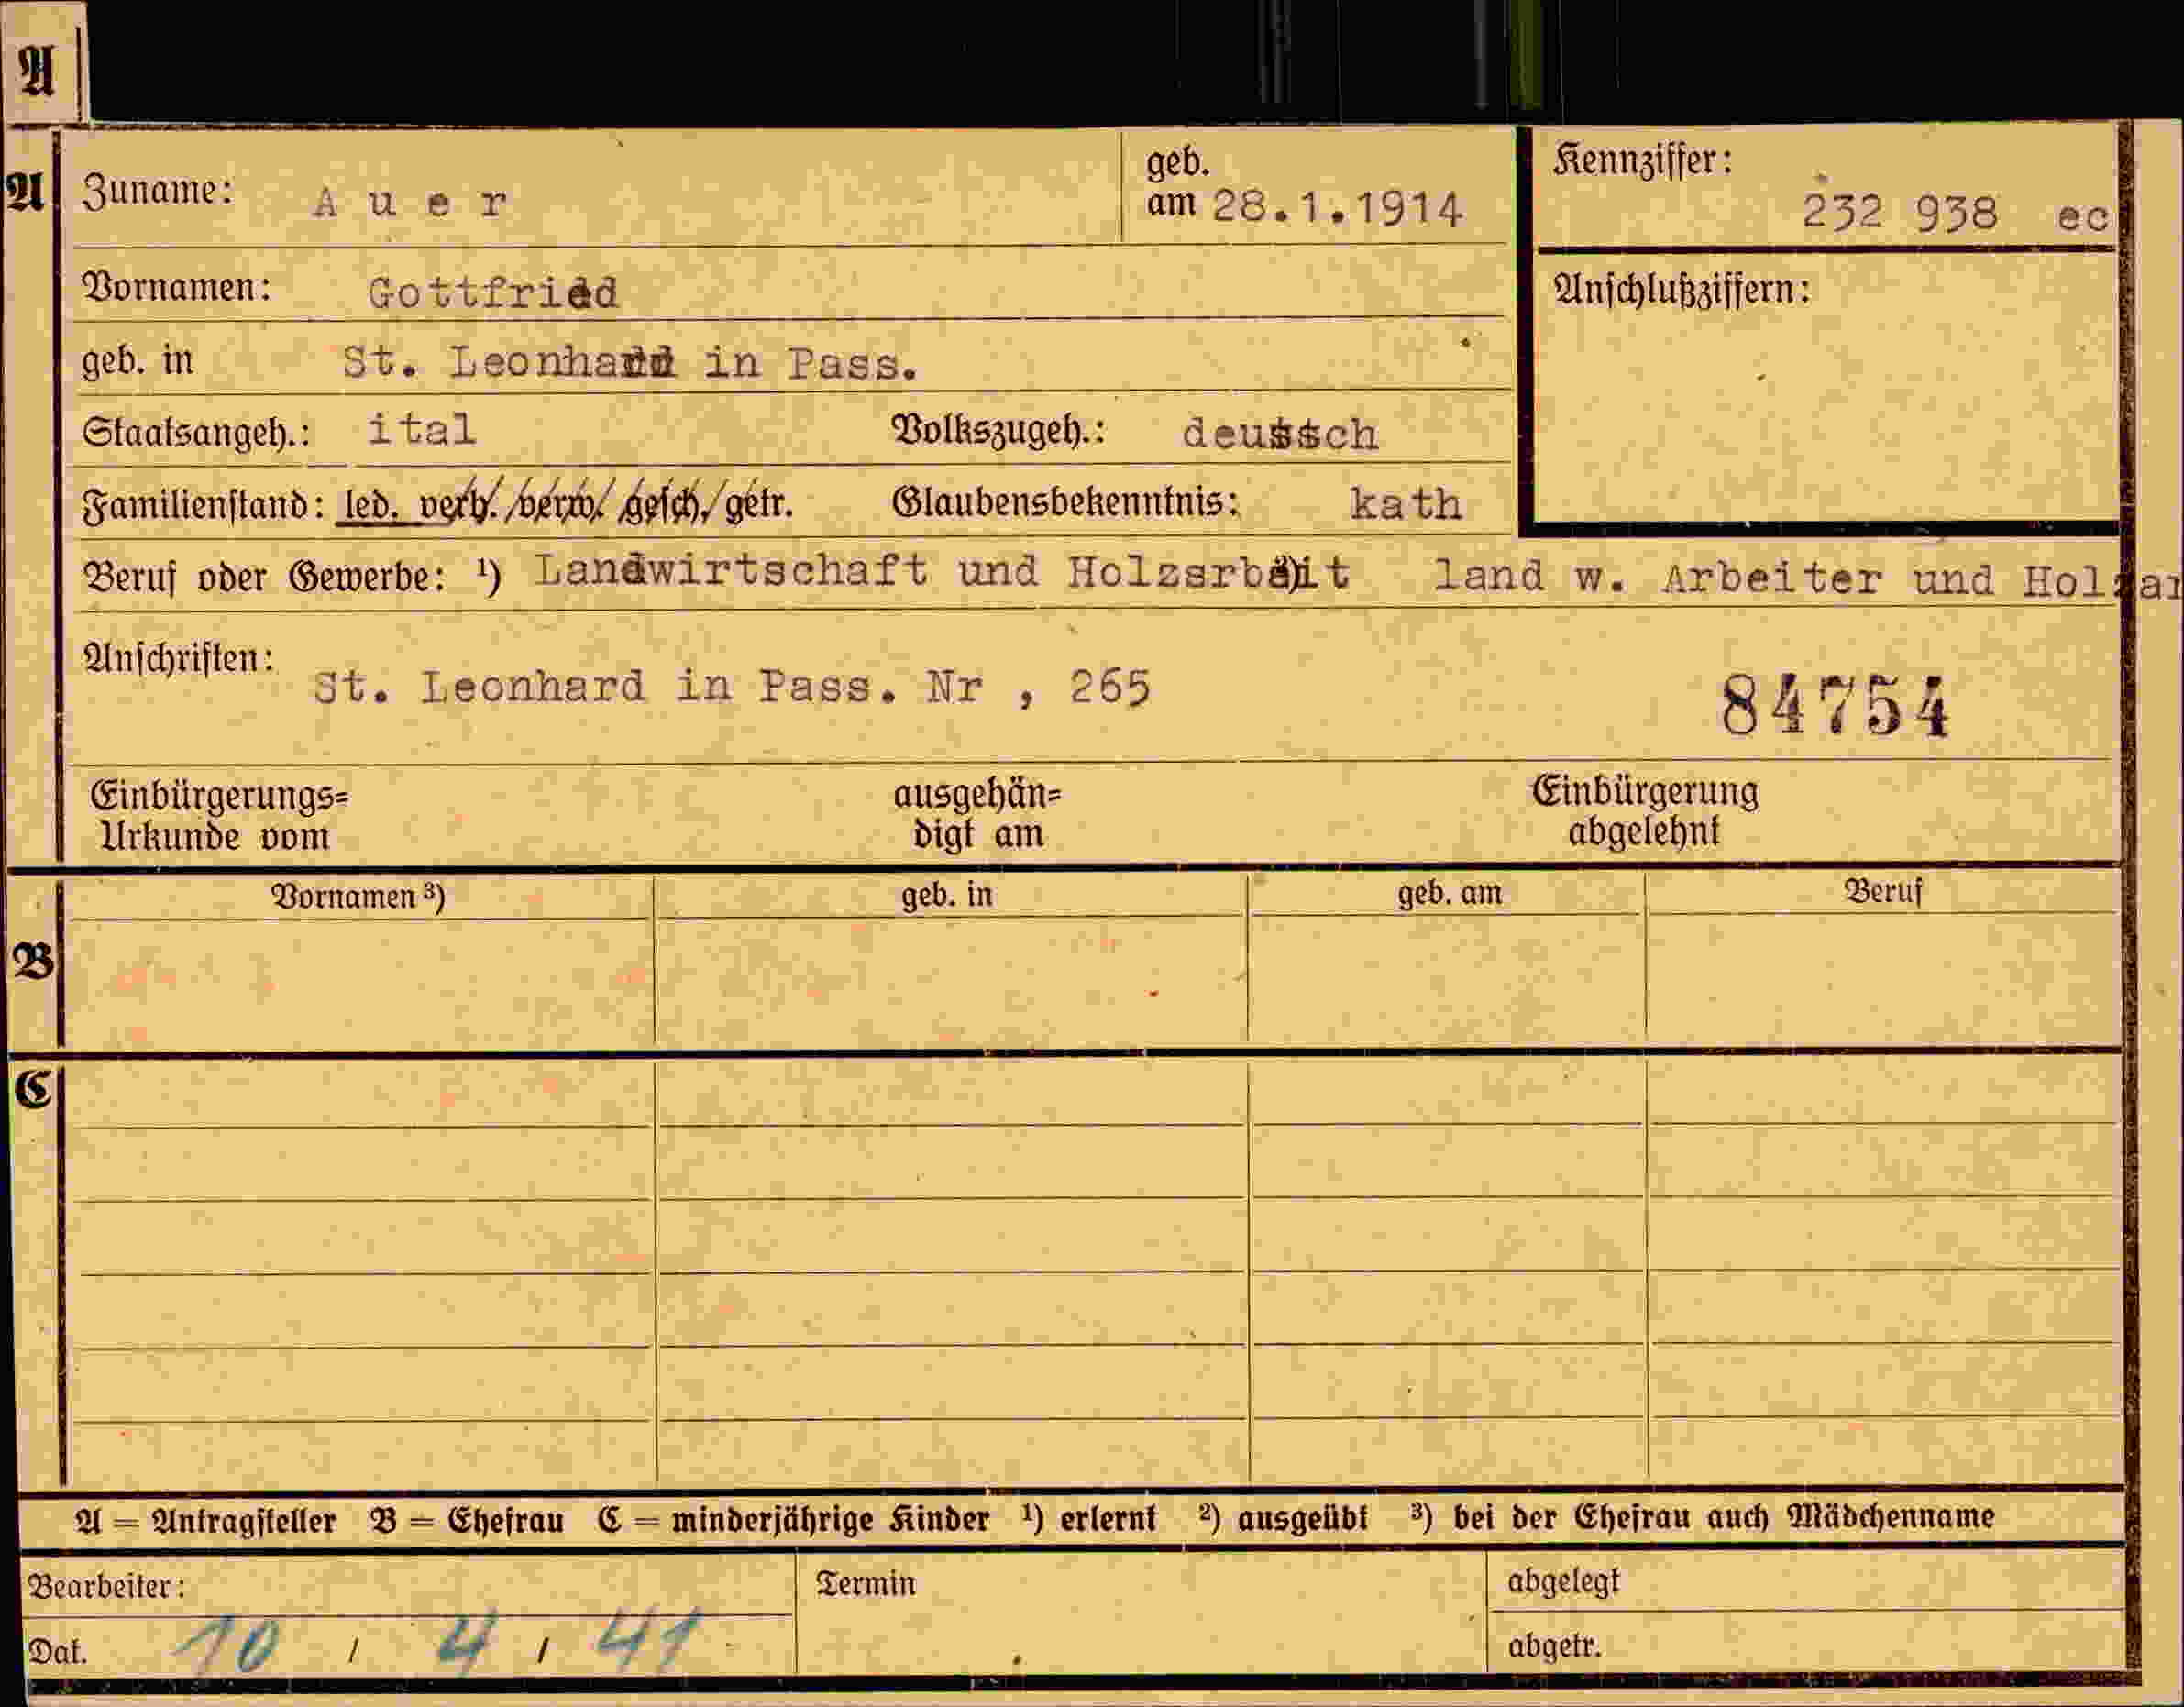 A
A Zuname: A u e r geb. am 28.1.1914 Kennziffer: 232 938 ec
Vornamen: Gottfried Anschlußziffern:
geb. in St. Leonhard in Pass.
Staatsangeh.: ital Volkszugeh.: deutsch
Familienstand: led. verh./verw./gesch./getr. Glaubensbekenntnis: kath
Beruf oder Gewerbe: ¹) Landwirtschaft und Holzarbeit land w. Arbeiter und Holzar
Anschriften: St. Leonhard in Pass. Nr , 265 84754
Einbürgerungs= ausgehän= Einbürgerung
Urkunde vom digt am abgelehnt
Vornamen ³) geb. in geb. am Beruf
B
C
A = Antragsteller B = Ehefrau C = minderjährige Kinder ¹) erlernt ²) ausgeübt ³) bei der Ehefrau auch Mädchenname
Bearbeiter: Termin abgelegt
Dat. 10 / 4 / 41 abgetr.